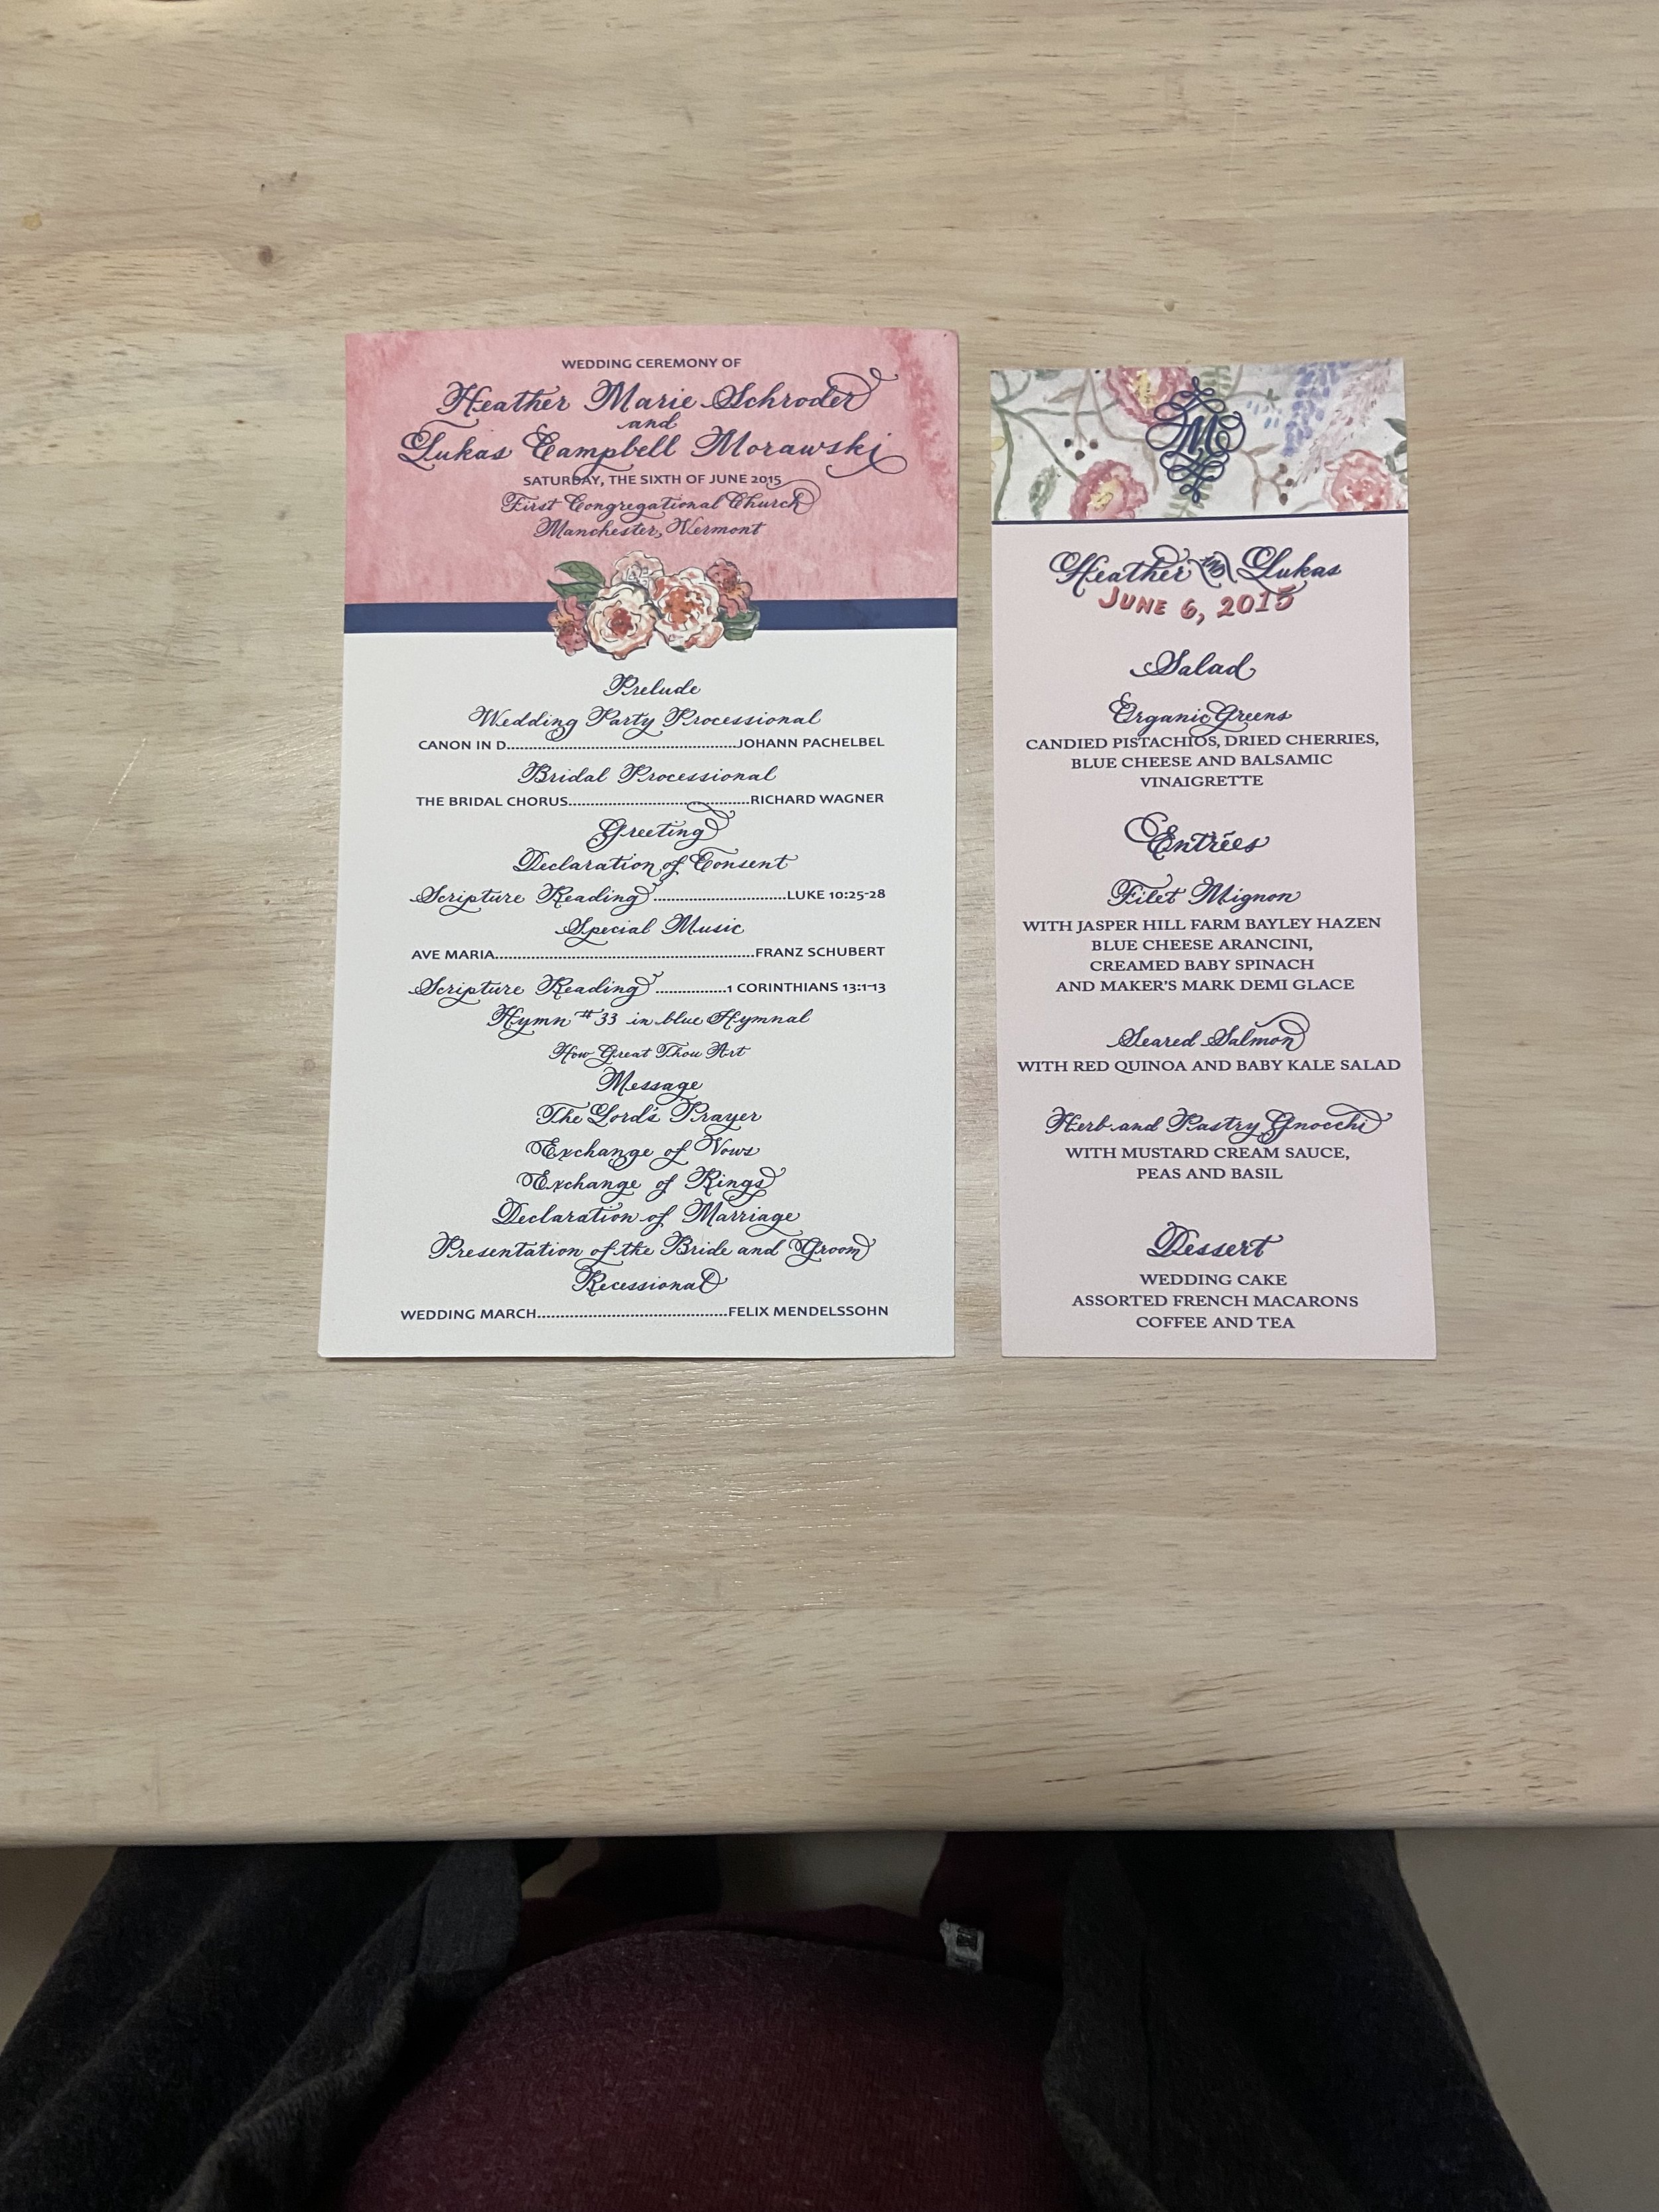 WEDDING CEREMONY OF
Heather Marie Schroder
and
Lukas Campbell Morawski
SATURDAY, THE SIXTH OF JUNE 2015
First Congregational Church
Manchester, Vermont
Prelude
Wedding Party Processional
CANON IN D..........JOHANN PACHELBEL
Bridal Processional
THE BRIDAL CHORUS..........RICHARD WAGNER
Greeting
Declaration of Consent
Scripture Reading..........LUKE 10:25-28
Special Music
AVE MARIA..........FRANZ SCHUBERT
Scripture Reading..........1 CORINTHIANS 13:1-13
Hymn #33 in blue Hymnal
How Great Thou Art
Message
The Lord's Prayer
Exchange of Vows
Exchange of Rings
Declaration of Marriage
Presentation of the Bride and Groom
Recessional
WEDDING MARCH..........FELIX MENDELSSOHN
M
Heather and Lukas
JUNE 6, 2015
Salad
Organic Greens
CANDIED PISTACHIOS, DRIED CHERRIES,
BLUE CHEESE AND BALSAMIC
VINAIGRETTE
Entrées
Filet Mignon
WITH JASPER HILL FARM BAYLEY HAZEN
BLUE CHEESE ARANCINI,
CREAMED BABY SPINACH
AND MAKER'S MARK DEMI GLACE
Seared Salmon
WITH RED QUINOA AND BABY KALE SALAD
Herb and Pastry Gnocchi
WITH MUSTARD CREAM SAUCE,
PEAS AND BASIL
Dessert
WEDDING CAKE
ASSORTED FRENCH MACARONS
COFFEE AND TEA